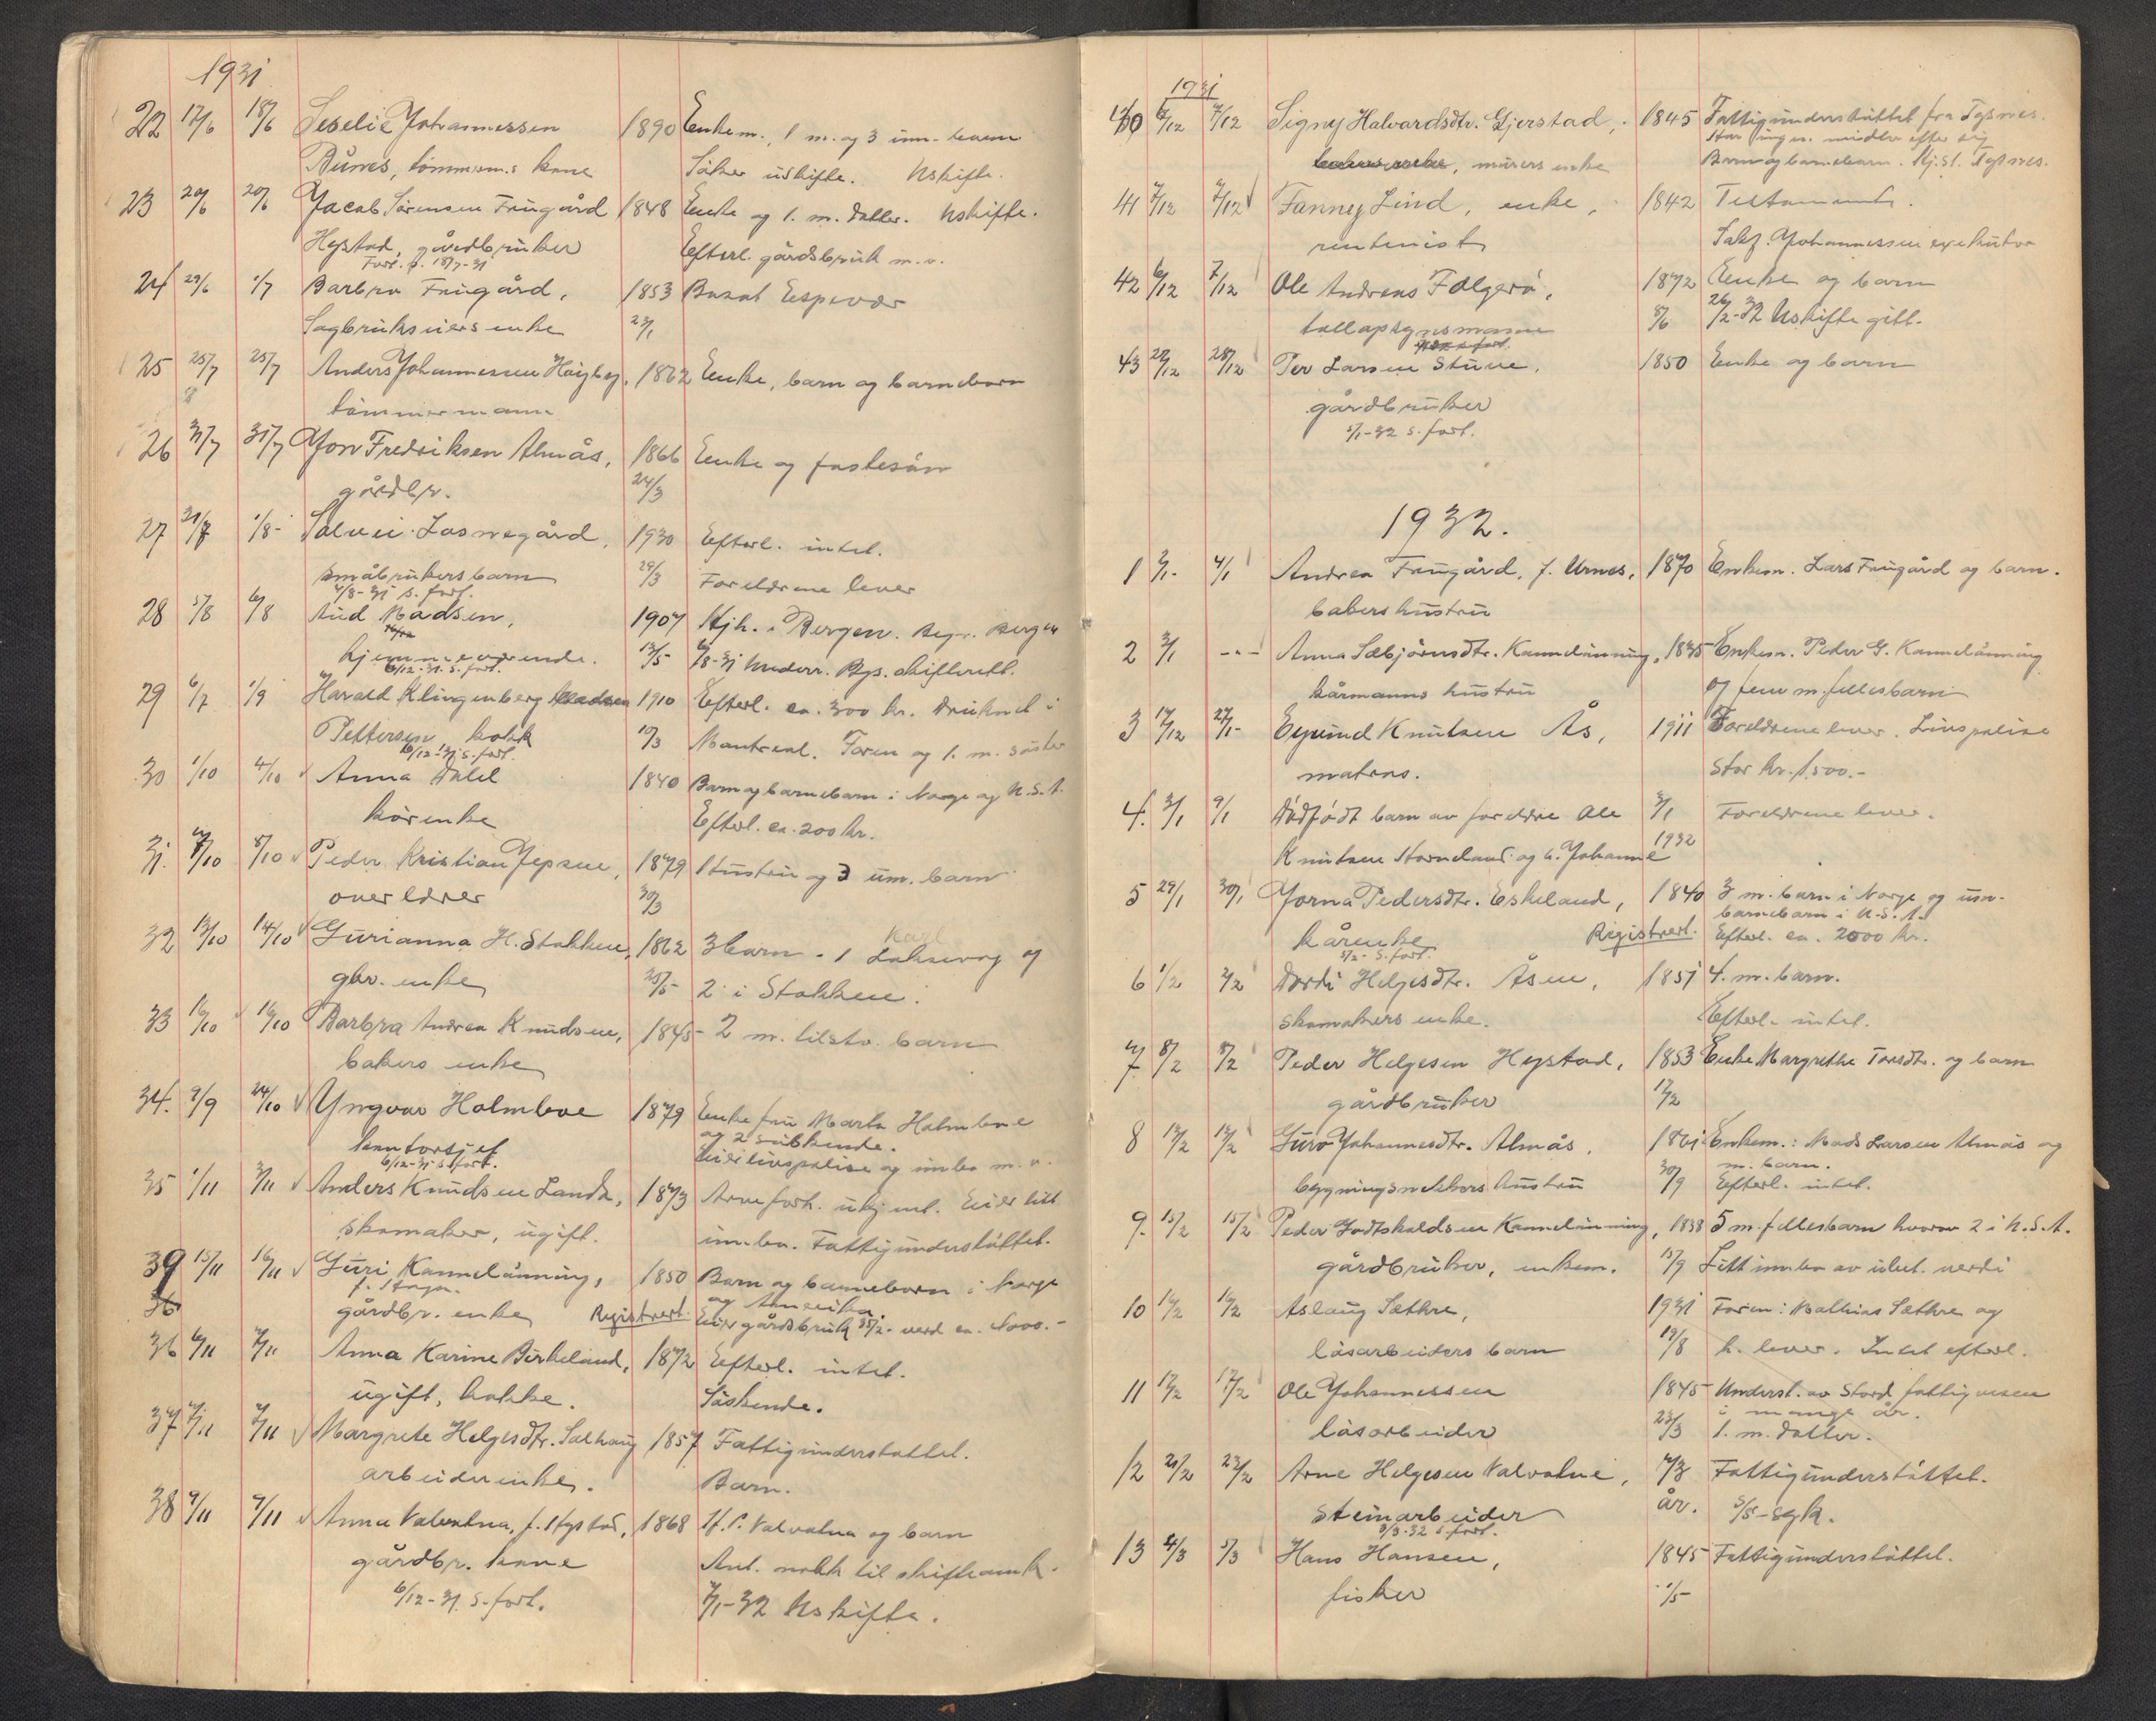 1931
22 17/6 18/6 Seselie Johannessen 1890 Enkem., 1 m. og 3 um. barn
Rünes, tømmerm.s kone Søker uskifte. Uskifte.
23 20/6 20/6 Jacob Sørensen Frugård 1848 Enke og 1 m. datter. Uskifte.
Hystad, gårdbruker Efterl. gårdsbruk m.v.
Forl. s. 18/7-31
24 29/6 1/7 Barbra Frugård, 1853 Busat Espevær
Sagbrukseiers enke 23/1
25 25/7 25/7 Anders Johannessen Høigbeg, 1862 Enke, barn og barnebarn
tømmermann
26 31/7 31/7 Jon Fredriksen Almås, 1866 Enke og fostersøn
gårdbr. 24/3
27 31/7 1/8 Solvei Lasnegård, 1930 Efterl. intet.
småbrukersbarn 29/3 Foreldrene lever
4/8-31 s. forl.
28 5/8 6/8 Aud Madsen, 1907 Hjh. i Bergen. Begr. Bergen
hjemmeværende. 13/5 6/8-31 Underr. Bgs. skifterett.
6/12-31 s. forl.
29 6/7 1/9 Harald Klingenberg Madsen 1910 Efterl. ca. 300 kr. Druknet i
Pettersen kokk 10/3 Montreal. Foren og 1 m. søster
6/12-31 s. forl.
30 1/10 4/10 Anna Dale 1840 Barn og barnebarn i Norge og U.S.A.
kårenke Efterl. ca. 200 kr.
31. 7/10 8/10 Peder Kristian Jepsen, 1879 Hustru og 3 um. barn
overlærer 30/3
32 13/10 14/10 Gurianna H. Stokken, 1862 3 barn. 1 Laksevåg og
Karl
gbr. enke 25/5 2 i Stokken.
33 16/10 16/10 Barbra Andrea Knudsen, 1845 2 m. tilstv. barn
bakers enke
34. 9/9 24/10 Yngvar Holmboe 1879 Enke fru Marta Holmboe
kontorsjef og 2 søskende.
6/12-31 s. forl. Eier livspolise og innbo m.v.
35 1/11 3/11 Anders Knudsen Landa, 1873 Arveforh. ukjent. Eier litt
skomaker, ugift. innbo. Fattigunderstøttet.
39 15/11 16/11 Guri Kannelønning, 1850 Barn og barnebarn i Norge
f. Haga. og Amerika.
36 gårdbr. enke Registrert. Eier gårdsbruk 25/2- verd ca. 4000.-
36 6/11 7/11 Anna Karine Birkeland, 1872 Efterl. intet.
ugift, kokke. Søskende.
37 7/11 7/11 Margrete Helgesdtr. Sælhaug 1857 Fattigunderstøttet.
arbeiderenke. Barn.
38 7/11 7/11 Anna Valvatna, f. Hystad, 1868 H. P. Valvatna og barn
gårdbr. kone Ant. nokk til skifteamk.
6/12-31. s. forl. 7/1-32 Uskifte.
1931
40 6/12 7/12 Signy Halvardsdtr. Gjerstad, 1845 Fattigunderstøttet fra Tysnes.
Har ingen midler efter sig
murers enke Barn og barnebarn. Hj.st. Tysnes.
41 7/12 7/12 Fanny Lind, enke, 1842 Testament.
rentenist Sakf. Johannessen exekutor
42 6/12 7/12 Ole Andreas Folgerø, 1872 Enke og barn
tollopsynsmann 8/6 26/2-32 Uskifte gitt.
43 28/12 28/12 Per Larsen Stuve, 1850 Enke og barn
gårdbruker
5/1-32 s. forl.
1932.
1 3/1- 4/1 Andrea Frugård, f. Urnes, 1870 Enkem. Lars Frugård og barn.
bakers hustru
2 3/1 -"- Anna Sæbjørnsdtr. Kannelønning, 1845 Enkem. Peder G. Kannelønning
kårmanns hustru og fem m. fellesbarn
3 17/12 27/1- Eyvind Knutsen Ås, 1911 Foreldrene lever. Livspolise
matros. stor kr. 1.500.-
4. 3/1 9/1 Dødfødt barn av foreldre Ole 3/1 Foreldrene lever.
Knutsen Horneland og h. Johanne 1932
5 29/1 30/1 Jorna Pedersdtr. Eskeland, 1840 3 m. barn i Norge og um.
barnebarn i U.S.A.
kårenke Registrert. Efterl. ca. 2000 kr.
5/2- s. forl.
6 1/2 2/2 Dordi Helgesdtr. Åsen, 1851 4. m. barn.
skomakers enke. Efterl. intet.
7 8/2 8/2 Peder Helgesen Hystad, 1853 Enke Margrethe Toresdtr. og barn
gårdbruker 17/2
8 13/2 13/2 Guro Johannesdtr. Almås. 1861 Enkem.: Mads Larsen Almås og
m. barn.
bygningsnekers hustru 30/9 Efterl. intet.
9. 15/2 15/2 Peder Godtskaldsen Kannelønning, 1838 5 m. fellesbarn hvorav 2 i U.S.A.
gårdbruker, enkem. 15/9 Litt innbo av ubet. verdi
10 16/2 16/2 Aslaug Sæthre, 1931 Foren: Mathias Sæthre og
løsarbeiders barn 19/8 h. lever. Intet efterl.
11 17/2 17/2 Ole Johannessen 1845 Underst. av Stord fattigvesen
i mange år.
løsarbeider 23/3 1. m. datter.
12 21/2 23/2 Arne Helgesen Valvatne, 73 Fattigunderstøttet.
steinarbeider år. 5/5-sgk.
3/3-32 s. forl.
13 4/3 5/3 Hans Hansen, 1845 Fattigunderstøttet.
fisker 1/5